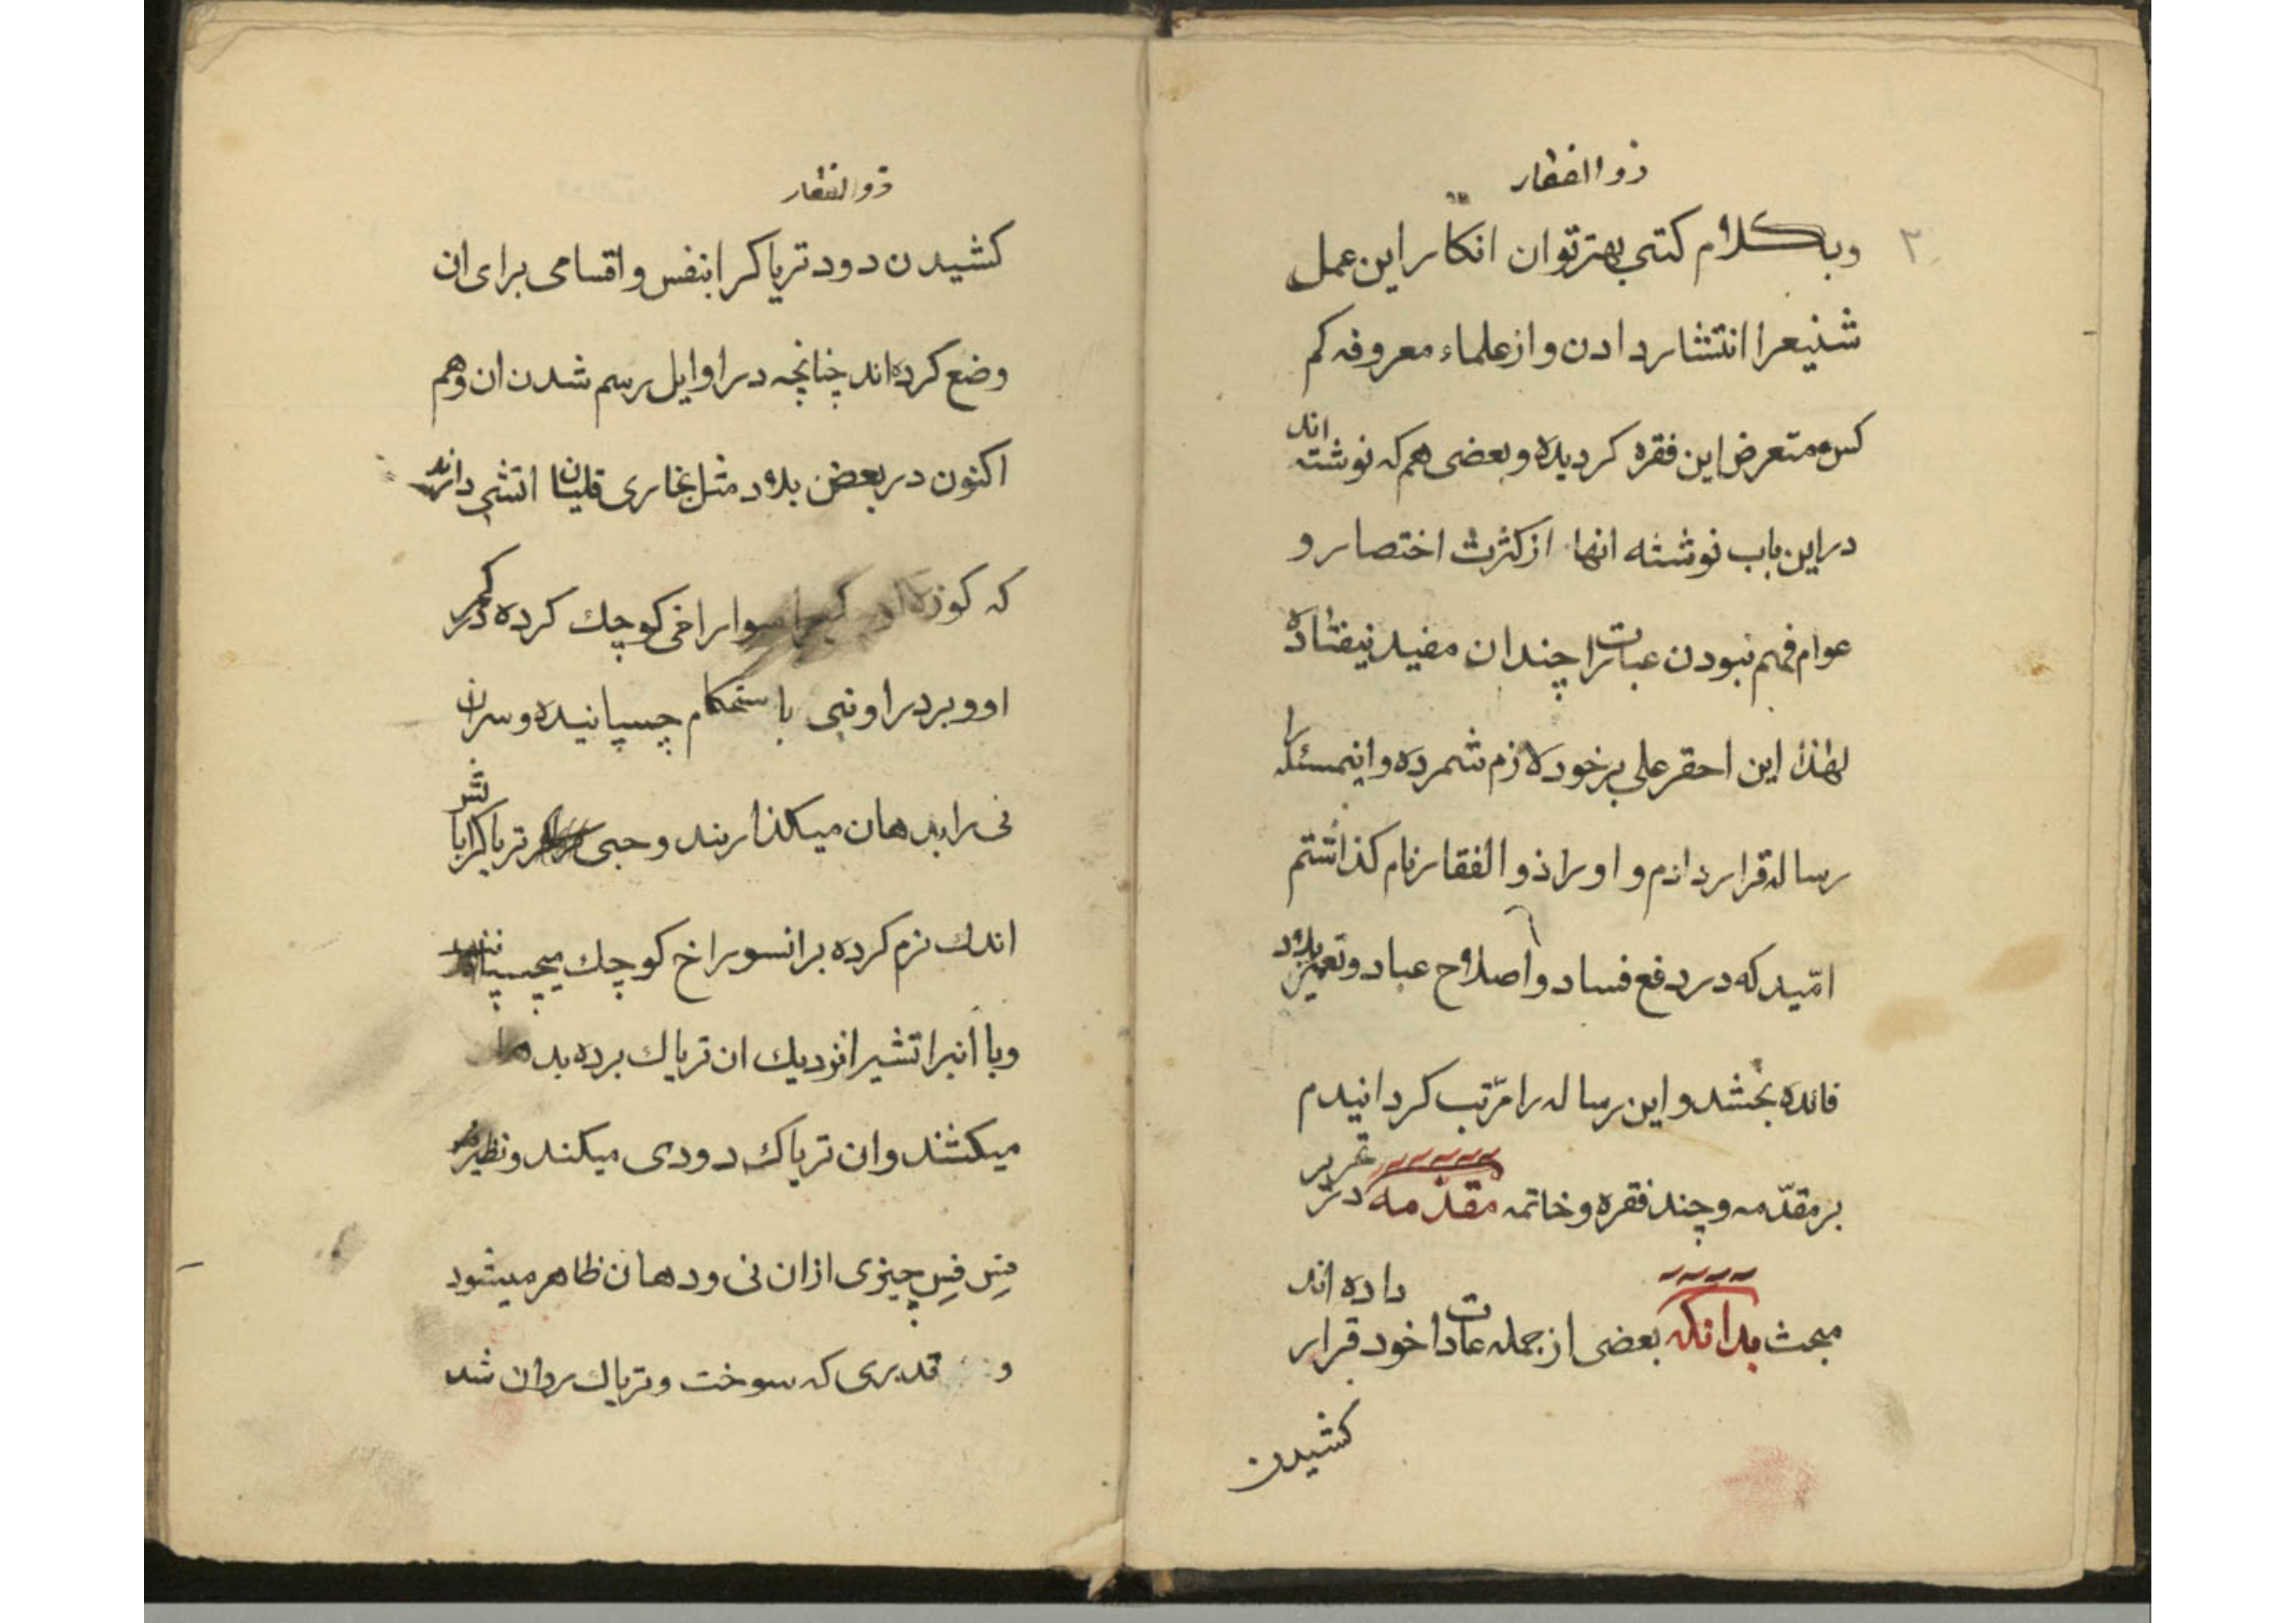 ذوالفقار
۲
وبكلام كتبی بهتر توان انكار این عمل
شنیعرا انتشار دادن و از علماء معروفه كم
كس متعرض این فقره كردیده و بعضی هم كه نوشته اند
در این باب نوشته انها از كثرت اختصار و
عوام فهم نبودن عبارترا چندان مفید نیفتاده
لهذا این احقر علی بر خود لازم شمرده و اینمسئله را
رساله قرار دادم و او را ذوالفقار نام كذاشتم
امّید كه در دفع فساد و اصلاح عباد و تعمیر بلاد
فائده بخشد و این رساله را مرّتب كردانیدم
بر مقدّمه و چند فقره و خاتمه مقدّمه در تحریر
مبحث بدانكه بعضی از جمله عادات خود قرار داده اند
كشیدن
ذوالفقار
كشیدن دود تریاكرا بنفس و اقسامی برای ان
وضع كرده اند چنانچه در اوایل رسم شدن ان وهم
اكنون در بعض بلاد مثل بخاری قلیان اتشی دارند
كه كوزه سوراخی كوچك كرده در كمر
او و بر در او نیی با ستحكام چسپانیده و سران
نی را بدهان میكذارند و حبی تریاكرا با تش
اندك نرم كرده بر انسوراخ كوچك میچسپانند
وبا انبر اتشیرا نزدیك ان تریاك برده بدهان
میكشند و ان تریاك دودی میكند و نظیر
فِس فِس چیزی از ان نی و دهان ظاهر میشود
و قدری كه سوخت و تریاك روان شد